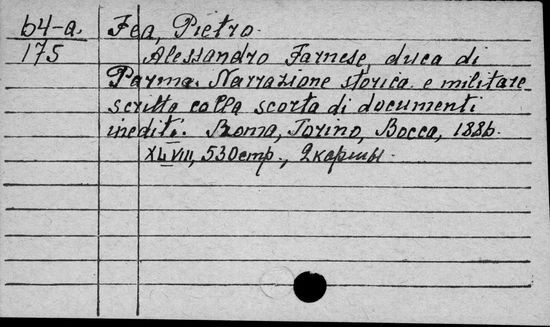 б4-а. Fea, Pietro.
175 Alessandro Farnese, duca di
Parma. Narrazione storica e militare
scritta colla scorta di documenti
inediti. Roma, Torino, Bocca, 1886.
XLVIII, 530стр., 2карты.